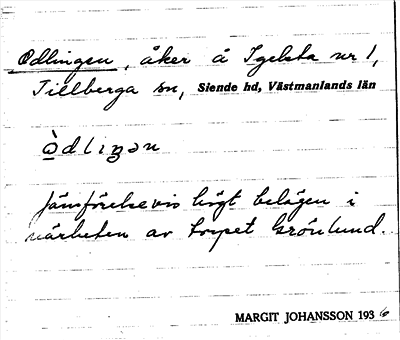 Odlingen, åker å Igelsta nr 1,
Tillberga sn, Siende hd, Västmanlands län
ò̱dliŋən
Jämförelsevis högt belägen i
närheten av torpet Grönlund.
MARGIT JOHANSSON 1936